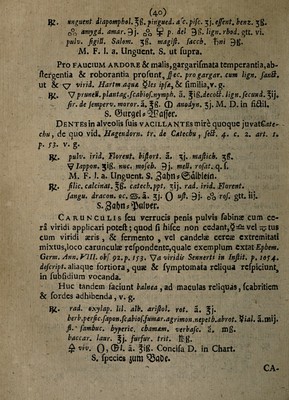 (40)
℞. unguent diapomphol. ʒß. pingued. a c. pisc. ʒj. essent. benz. ʒß.
amygd. amar. Ɔj. p. del Ɔß. lign. rhod. gtt. vi.
pulv. sigill. Salom. ʒß. magist. sacch. ♄ni Ɔß.
M. F. l. a. Unguent. S. ut supra.
Pro FAUCIUM ARDORE & malis, gargarismata temperantia, ab-
stergentia & roborantia prosunt, flec. pro gargar. cum lign. sanct.
ut & ▽ virid. Hartm. aqua Qles ipsa, & similia, v. g.
℞. ▽ prunell. plantag. scabios. nymph. ā. ℥iß. decoct. lign. secund. ℥ij,
sir. de semperv. moror. ā. ℥ß. anodyn. ʒj. M. D. in fictil.
S. Gurgel-Wasser.
DENTES in alveolis suis VACILLANTES mirè quoque juvat Cate-
chu, de quo vid. Hagendorn. tr. de Catechu, sect. 4. c. 2. art. 1.
p. 53. v. g.
℞. pulv. irid. Florent. bistort. ā. ʒj. mastich. ʒß.
Iappon. ʒiß. nuc. mosch. Ɔj. mell. rosat. q. s.
M. F. l. a. Unguent. S. Zahn-Sälblein.
℞. silic. calcinat. ʒß. catech. ppt. ʒij. rad. irid. Florent.
sangu. dracon. oc. ā. ʒj. ust. Ɔj. ros. gtt. iij.
S. Zahn-Pulver.
CARUNCULIS seu verrucis penis pulvis sabinæ cum ce-
râ viridi applicari potest; quod si hisce non cedant, vel tus
cum viridi æris, & fermento, vel candelæ cereæ extremitati
mixtus, loco carunculæ respondente, quale exemplum extat Ephem.
Germ. Ann. VIII. obs. 92. p. 153. ▽a viridis Sennerti in Instit. p. 1054.
descript. aliaque fortiora, quæ & symptomata reliqua respiciunt,
in subsidium vocanda.
Huc tandem faciunt balnea, ad maculas reliquas, scabritiem
& sordes adhibenda, v. g.
℞. rad. oxylap. lil. alb. aristol. rot. ā. ʒj.
herb. persic. sapon. scabios. fumar. agrimon. nepeth. abrot. ā. mij.
fl. sambuc. hyperic. chamæm. verbasc. ā. mß.
baccar. laur. ℥j. furfur. trit. ℔ß.
viv. ā. ℥iß. Concisa D. in Chart.
S. species zum Bade.
CA-